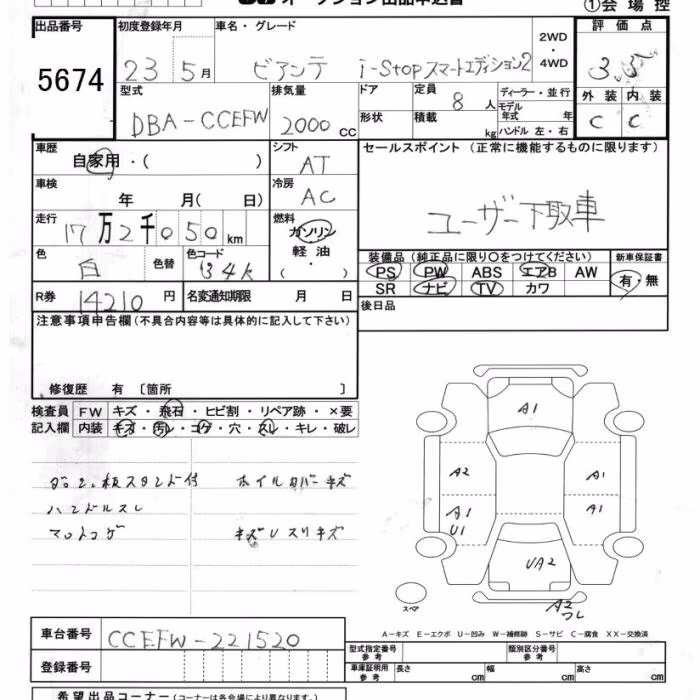 オークション出品申込書
①会場控
出品番号 初度登録年月 車名・グレード 2WD・4WD 評価点
5674 23 5月 ビアンテ i-Stopスマートエディション2 3.5
型式 排気量 ドア 定員 8人 ディーラー・並行 外装 内装
DBA-CCEFW 2000cc 形状 積載 kg モデル年式 年 ハンドル 左・右 C C
車歴 自家用・( ) シフト AT セールスポイント (正常に機能するものに限ります)
車検 年 月( 日) 冷房 AC
ユーザー下取車
走行 17万2千050km 燃料 ガソリン 軽油 ( ・ )
色 白 色替 色コード 34K
装備品 (純正品に限り〇をつけてください) 新車保証書
PS PW ABS エアB AW 有・無
SR ナビ TV カワ
R券 14210円 名変通知期限 月 日 後日品
注意事項申告欄 (不具合内容等は具体的に記入して下さい)
修復歴 有 [箇所 ]
検査員 FW キズ・飛石・ヒビ割・リペア跡・×要
記入欄 内装 キズ・汚レ・コゲ・穴・スレ・キレ・破レ
スタンド付 ホイルカバーキズ
ハンドルスレ
マットコゲ キズUスリキズ
A1
A2 A1
A1 U1 A1
UA2
A2
スペア
A-キズ E-エクボ U-凹み W-補修跡 S-サビ C-腐食 XX-交換済
車台番号 CCEFW-221520
型式指定番号 参考 類別区分番号 参考
登録番号
車庫証明用 参考 長さ cm 幅 cm 高さ cm
希望出品コーナー (コーナーは各会場により異なります。)